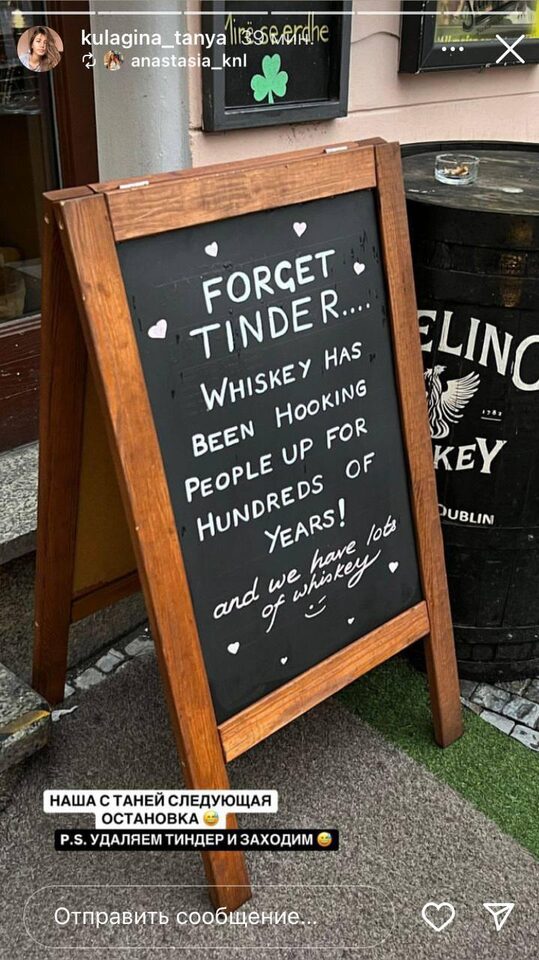 kulagina_tanya 39 мин.
anastasia_knl
FORGET
TINDER....
WHISKEY HAS
BEEN HOOKING
PEOPLE UP FOR
HUNDREDS OF
YEARS!
and we have lots
of whiskey
ELING
1782
KEY
DUBLIN
НАША С ТАНЕЙ СЛЕДУЮЩАЯ
ОСТАНОВКА 😅
P.S. УДАЛЯЕМ ТИНДЕР И ЗАХОДИМ 😅
Отправить сообщение...